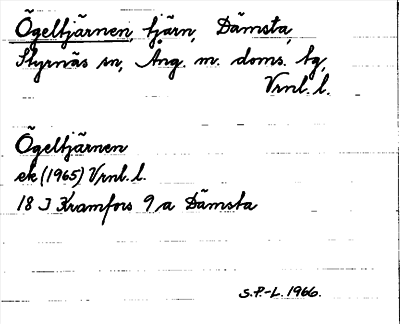 Ögeltjärnen, tjärn, Dämsta,
Styrnäs sn, Ång. m. doms. tg,
Vrnl. l.
Ögeltjärnen
ek (1965) Vrnl. l.
18 J Kramfors 9 a Dämsta
S.P.-L. 1966.